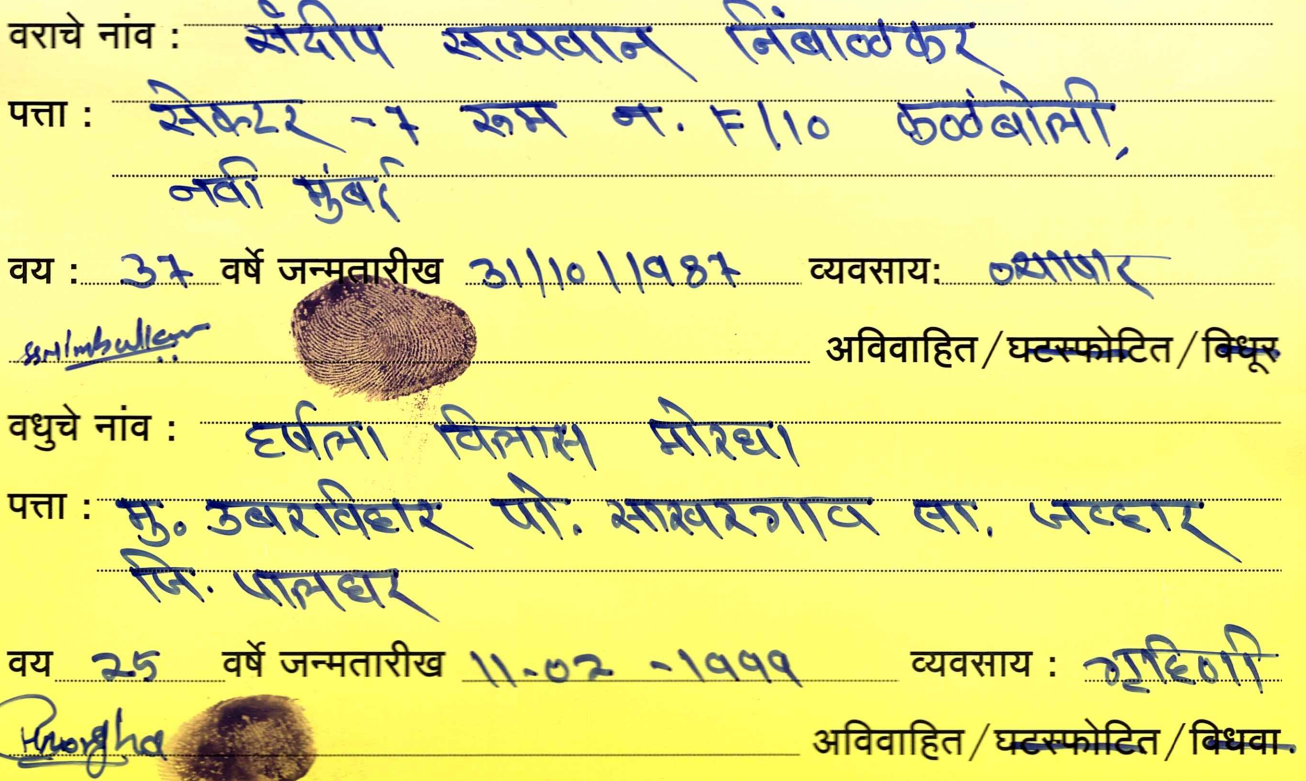 वराचे नांव : संदीप सत्यवान निंबाळकर
पत्ता : सेक्टर -7 रूम न. F/10 कळंबोली,
नवी मुंबई
वय : 37 वर्षे जन्मतारीख 31/10/1987 व्यवसाय: व्यापार
अविवाहित/घटस्फोटित/विधूर
वधुचे नांव : हर्षला विलास मोरघा
पत्ता : मु. उबरविहार पो. साखरगाव ता. जव्हार
जि. पालघर
वय 25 वर्षे जन्मतारीख 11-02-1999 व्यवसाय : गृहिणी
अविवाहित/घटस्फोटित/विधवा.